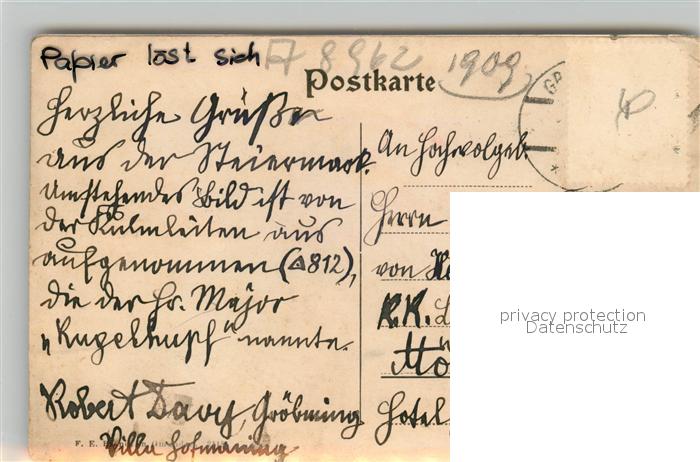 Papier löst sich
A 8962
1909
Postkarte
Herzliche Grüße
aus der Steiermark.
Umstehendes Bild ist von
der Kulmleiten aus
aufgenommen (△812),
die der Hr. Major
„Kugelhupf" nannte.
Robert Davy, Gröbming
Villa Hofmaning
F. E.
An Hochwolgeb.
Herrn
von
K.K.
Mö
Hotel
GR
privacy protection
Datenschutz